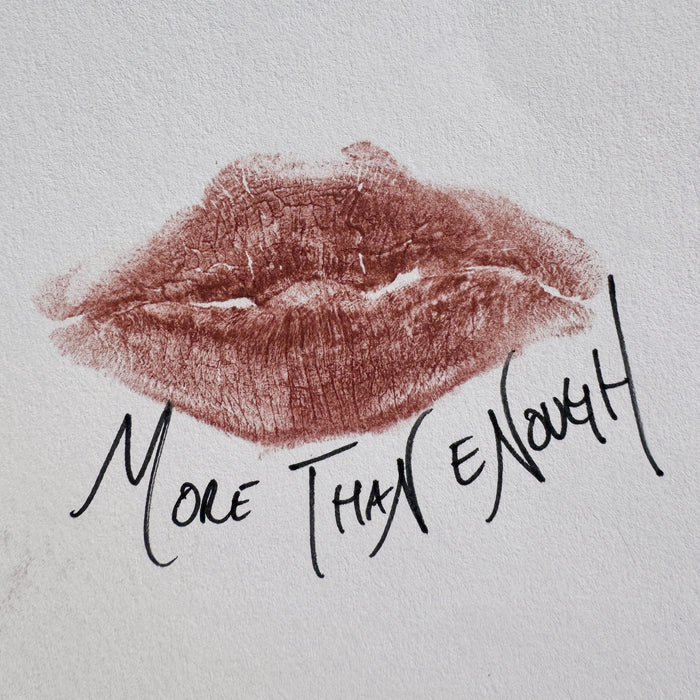 More Than Enough